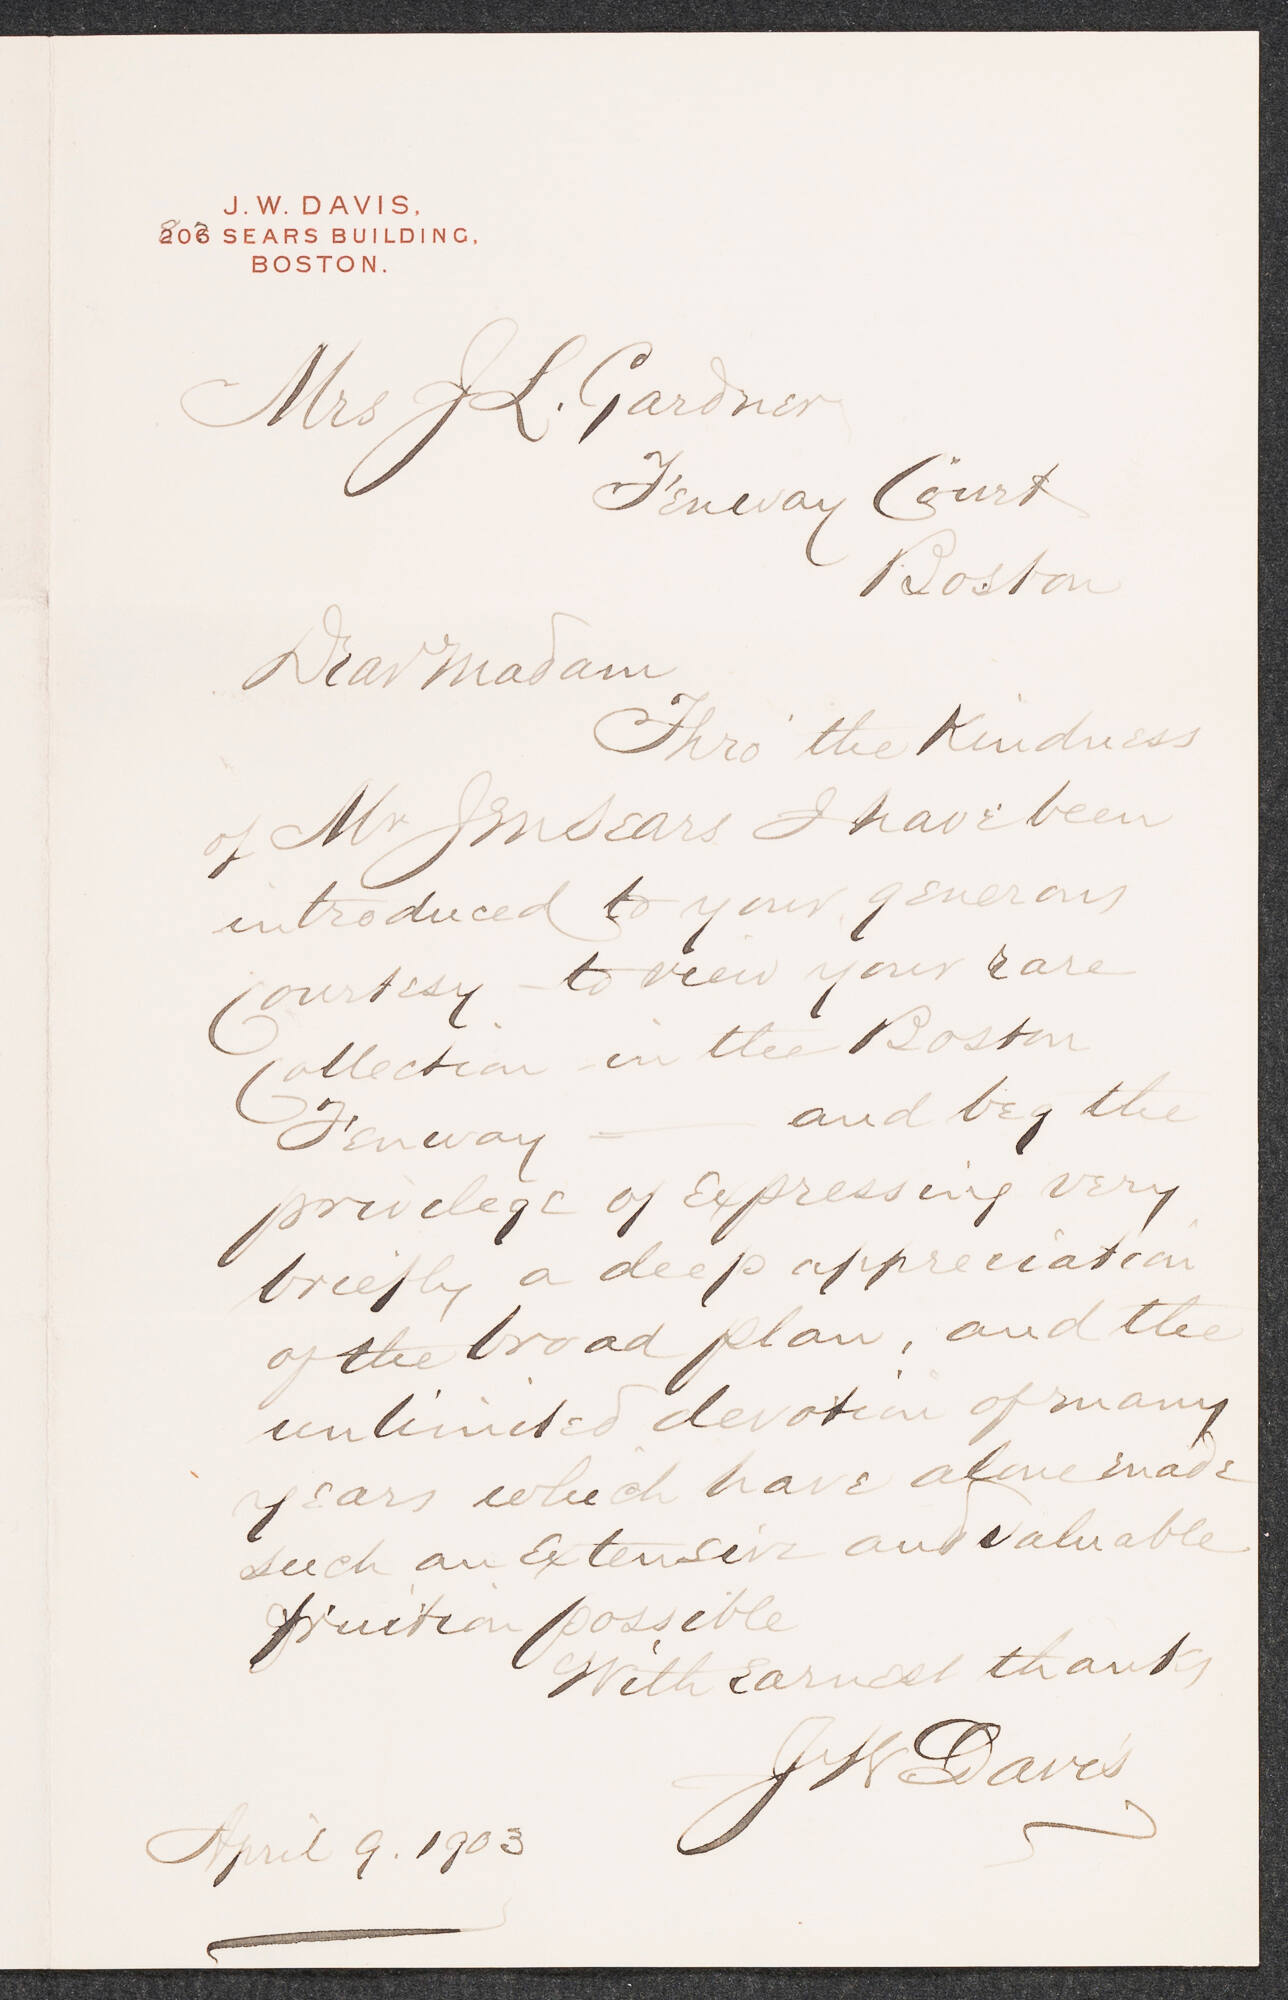 J. W. DAVIS,
206 SEARS BUILDING,
BOSTON.
Mrs J L. Gardner
Fenway Court
Boston
Dear Madam
Thro' the Kindness
of Mr J M Sears I have been
introduced to your generous
Courtesy - to view your rare
Collection - in the Boston
Fenway — and beg the
privilege of Expressing very
briefly a deep appreciation
of the broad plan, and the
unlimited devotion of many
years which have alone made
such an Extensive and valuable
fruition possible
With Earnest thanks
J W Davis
April 9. 1903